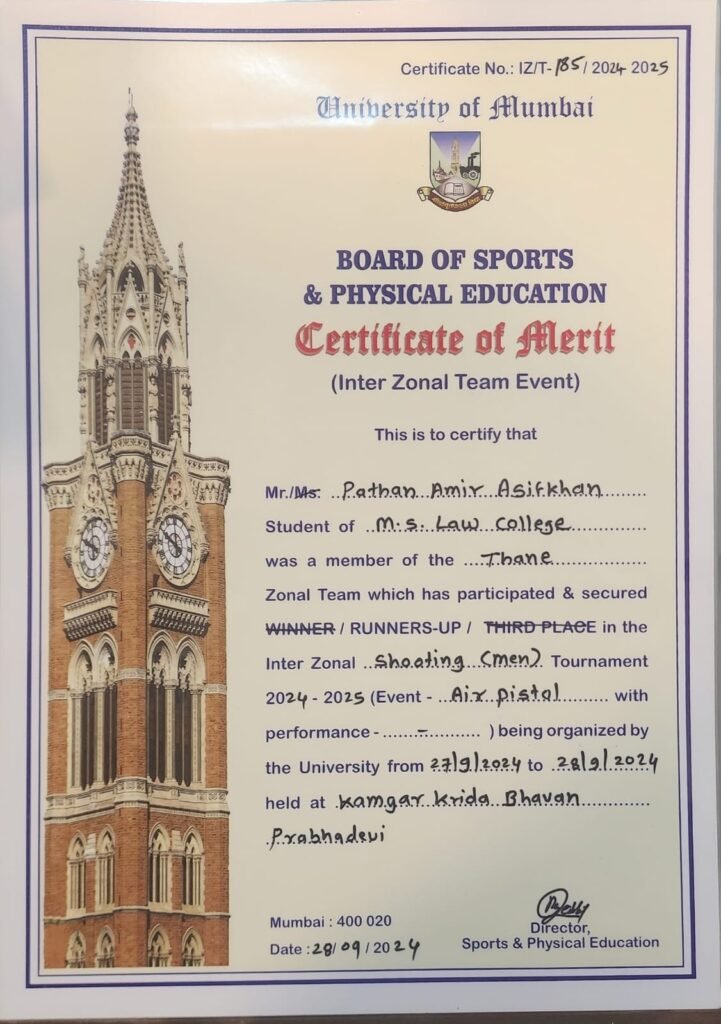 Certificate No.: IZ/T-185/2024 2025
University of Mumbai
BOARD OF SPORTS
& PHYSICAL EDUCATION
Certificate of Merit
(Inter Zonal Team Event)
This is to certify that
Mr./Ms. Pathan Amir Asifkhan
Student of M.S. Law College
was a member of the Thane
Zonal Team which has participated & secured
WINNER / RUNNERS-UP / THIRD PLACE in the
Inter Zonal Shooting (men) Tournament
2024 - 2025 (Event - Air pistol with
performance - ......-...... ) being organized by
the University from 27/9/2024 to 28/9/2024
held at Kamgar Krida Bhavan
Prabhadevi
Mumbai : 400 020
Date : 28/09/2024
Director,
Sports & Physical Education